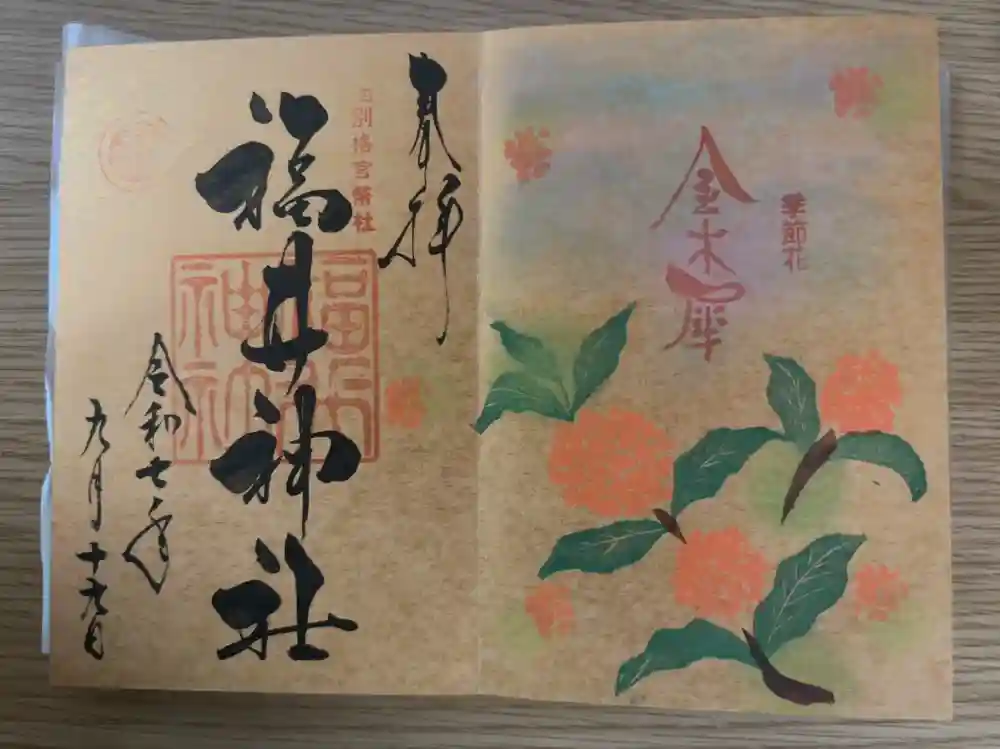 季節花
金木犀
奉拝
旧別格官幣社
福井神社
福井
神社
令和七年
九月十九日